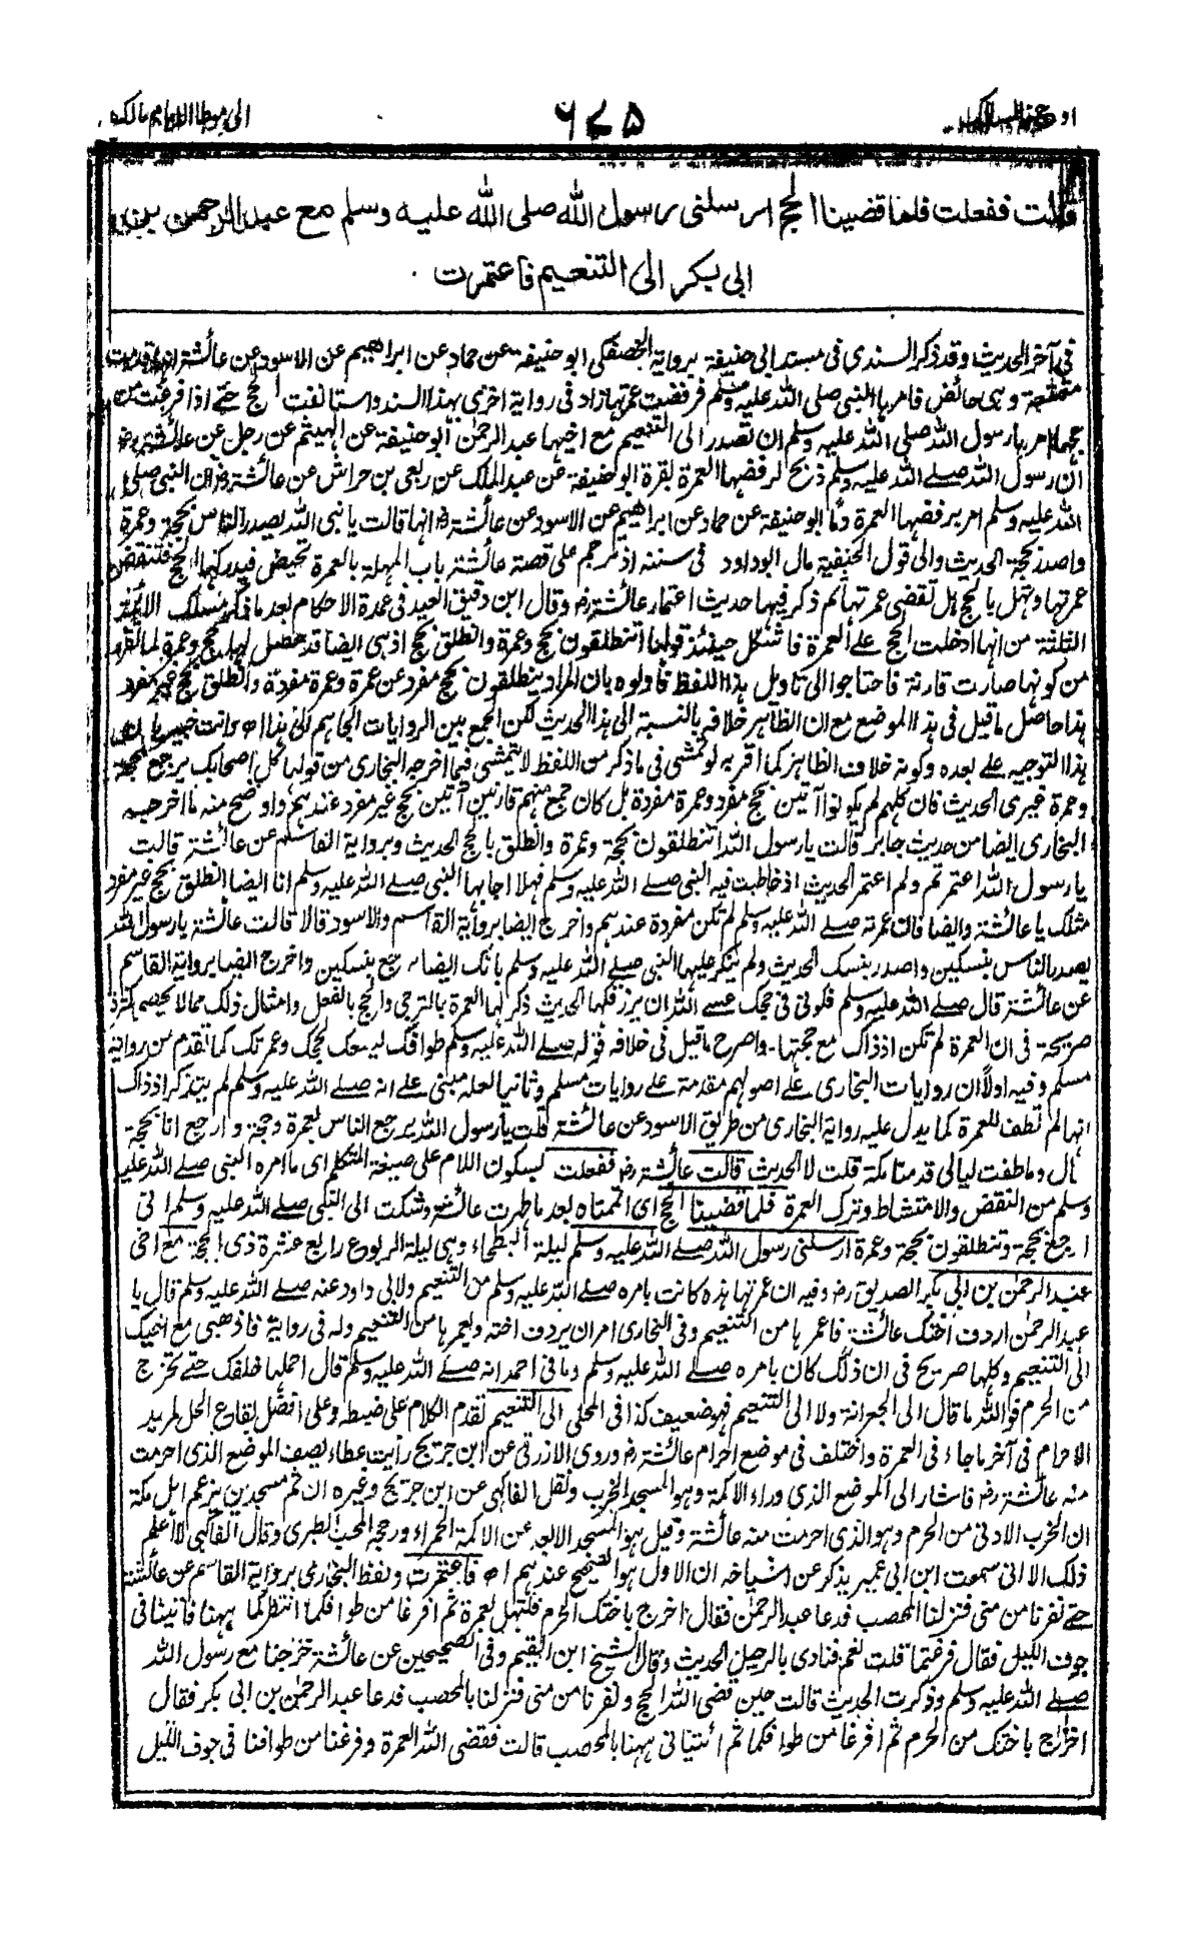 اوجز المسالك
٦٧٥
الى موطا الامام مالك
قالت ففعلت فلما قضينا الحج ارسلنى رسول الله صلى الله عليه وسلم مع عبد الرحمن بن
ابى بكر الى التنعيم فاعتمرت
فى آخر الحديث وقد ذكر السندى فى مسند ابى حنيفة برواية الحصفكى ابو حنيفة عن حماد عن ابراهيم عن الاسود عن عائشة انها قدمت
متمتعة وهى حائض فامرها النبى صلى الله عليه وسلم فرفضت عمرتها زاد فى رواية اخرى بهذا السند واستانفت الحج حتے اذا فرغت من
حجها امرها رسول الله صلى الله عليه وسلم ان تصدر الى التنعيم مع اخيها عبد الرحمن ابو حنيفة عن الهيثم عن رجل عن عائشة رض
ان رسول الله صلے الله عليه وسلم ذبح لرفضها العمرة بقرة ابو حنيفة عن عبد الملك عن ربعى بن حراش عن عائشة رض ان النبى صلى
الله عليه وسلم امر برفضها العمرة دما ابو حنيفة عن حماد عن ابراهيم عن الاسود عن عائشة رض انها قالت يا نبى الله يصدر الناس بحجة وعمرة
واصدر بحجة الحديث والى قول الحنفية مال ابو داود فى سننه اذ ترجم على قصة عائشة باب المهلة بالعمرة تحيض فيدركها الحج فتنقض
عمرتها وتهل بالحج هل تقضى عمرتها ثم ذكر فيها حديث اعتمار عائشة رض وقال ابن دقيق العيد فى عمدة الاحكام بعد ما ذكر مسلك الائمة
الثلثة من انها ادخلت الحج علے العمرة فاشكل حينئذ قولها اتنطلقون بحج وعمرة وانطلق بحج اذ هى ايضا قد حصل لها حج وعمرة لما تقرر
من كونها صارت قارنة فاحتاجوا الى تاويل هذا اللفظ فاولوه بان المراد ينطلقون بحج مفرد عن عمرة وعمرة مفردة وانطلق بحج غير مفرد
هذا حاصل ما قيل فى هذا الموضع مع ان الظاهر خلافه بالنسبة الى هذا الحديث لكن الجمع بين الروايات الجاهم الى هذا اه وانت خبير بان
هذا التوجيه علے بعده وكونه خلاف الظاهر كما اقر به لو تمشى فى ما ذكر من اللفظ لا يتمشى فيما اخرجه البخارى من قولها كل اصحابك يرجع بحجة
وعمرة غيرى الحديث فان كلهم لم يكونوا آتين بحج مفرد وعمرة مفردة بل كان جمع منهم قارنين آتين بحج غير مفرد عندهم واوضح منه ما اخرجه
البخارى ايضا من حديث جابر قالت يا رسول الله اتنطلقون بحجة وعمرة وانطلق بالحج الحديث وبرواية القاسم عن عائشة قالت
يا رسول الله اعتمرتم ولم اعتمر الحديث اذ خاطبت فيه النبى صلے الله عليه وسلم فهلا اجابها النبى صلے الله عليه وسلم انا ايضا انطلق بحج غير مفرد
مثلك يا عائشة وايضا فان عمرته صلے الله عليه وسلم لم تكن مفردة عندهم واخرج ايضا برواية القاسم والاسود قالا قالت عائشة يا رسول الله
يصدر الناس بنسكين واصدر بنسك الحديث ولم ينكر عليها النبى صلے الله عليه وسلم بانك ايضا ترجع بنسكين واخرج ايضا برواية القاسم
عن عائشة قال صلے الله عليه وسلم فكونى فى حجك عسے الله ان يرزقكها الحديث ذكر لها العمرة بالترجى والحج بالفعل وامثال ذلك مما لا يحصى كثرة
صريحة فى ان العمرة لم تكن اذ ذاك مع حجتها - واصرح ما قيل فى خلافه قوله صلے الله عليه وسلم طوافك ليسعك لحجك وعمرتك كما تقدم من رواية
مسلم وفيه اولا ان روايات البخارى علے اصولهم مقدمة علے روايات مسلم وثانيا لعله مبنى علے انه صلے الله عليه وسلم لم يتذكر اذ ذاك
انها لم تطف للعمرة كما يدل عليه رواية البخارى من طريق الاسود عن عائشة قلت يا رسول الله يرجع الناس بعمرة وحجة وارجع انا بحجة
قال وما طفت ليالى قدمنا مكة قلت لا الحديث قالت عائشة رض ففعلت بسكون اللام على صيغة المتكلم اى ما امره النبى صلے الله عليه
وسلم من النقض والامتشاط وترك العمرة فلما قضينا الحج اى اتممناه بعد ما طهرت عائشة وشكت الى النبى صلے الله عليه وسلم انى
ارجع بحجة وتنطلقون بحجة وعمرة ارسلنى رسول الله صلے الله عليه وسلم ليلة البطحاء وهى ليلة الربوع رابع عشرة ذى الحجة مع اخى
عبد الرحمن بن ابى بكر الصديق رض وفيه ان عمرتها هذه كانت بامره صلے الله عليه وسلم من التنعيم ولابى داود عنه صلے الله عليه وسلم قال يا
عبد الرحمن اردف اختك عائشة فاعمرها من التنعيم وفى البخارى امر ان يردف اخته ويعمرها من التنعيم وله فى رواية فاذهبى مع اخيك
الى التنعيم وكلها صريح فى ان ذلك كان بامره صلے الله عليه وسلم وما فى احمد انه صلے الله عليه وسلم قال احملها خلفك حتے تخرج
من الحرم فوالله ما قال الى الجعرانة ولا الى التنعيم فهو ضعيف كذا فى المحلى الى التنعيم تقدم الكلام على ضبطه وعلى افضل بقاع الحل لمريد
الاحرام فى آخر ما جاء فى العمرة واختلف فى موضع احرام عائشة رض وروى الازرقى عن ابن جريج رأيت عطاء يصف الموضع الذى احرمت
منه عائشة رض فاشار الى الموضع الذى وراء الاكمة وهو المسجد الخرب ونقل الفاكهى عن ابن جريج وغيره ان ثم مسجدين يزعم اهل مكة
ان الخرب الادنى من الحرم وهو الذى احرمت منه عائشة وقيل هو المسجد الابعد عن الاكمة الحمراء ورجحه المحب الطبرى وقال الفاكهى لا اعلم
ذلك الا انى سمعت ابن ابى عمير يذكر عن اشياخه ان الاول هو الصحيح عندهم اه فاعتمرت ولفظ البخارى برواية القاسم عن عائشة
حتے نفرنا من منى فنزلنا المحصب فدعا عبد الرحمن فقال اخرج باختك الحرم فلتهل بعمرة ثم افرغا من طوافكما انتظركما ههنا فاتينا فى
جوف الليل فقال فرغتما قلت نعم فنادى بالرحيل الحديث وقال الشيخ ابن القيم وفى الصحيحين عن عائشة خرجنا مع رسول الله
صلے الله عليه وسلم وذكرت الحديث قالت حين قضى الله الحج ونفرنا من منى فنزلنا بالمحصب فدعا عبد الرحمن بن ابى بكر فقال
اخرج باختك من الحرم ثم افرغا من طوافكما ثم ائتيانى ههنا بالمحصب قالت فقضى الله العمرة وفرغنا من طوافنا فى جوف الليل